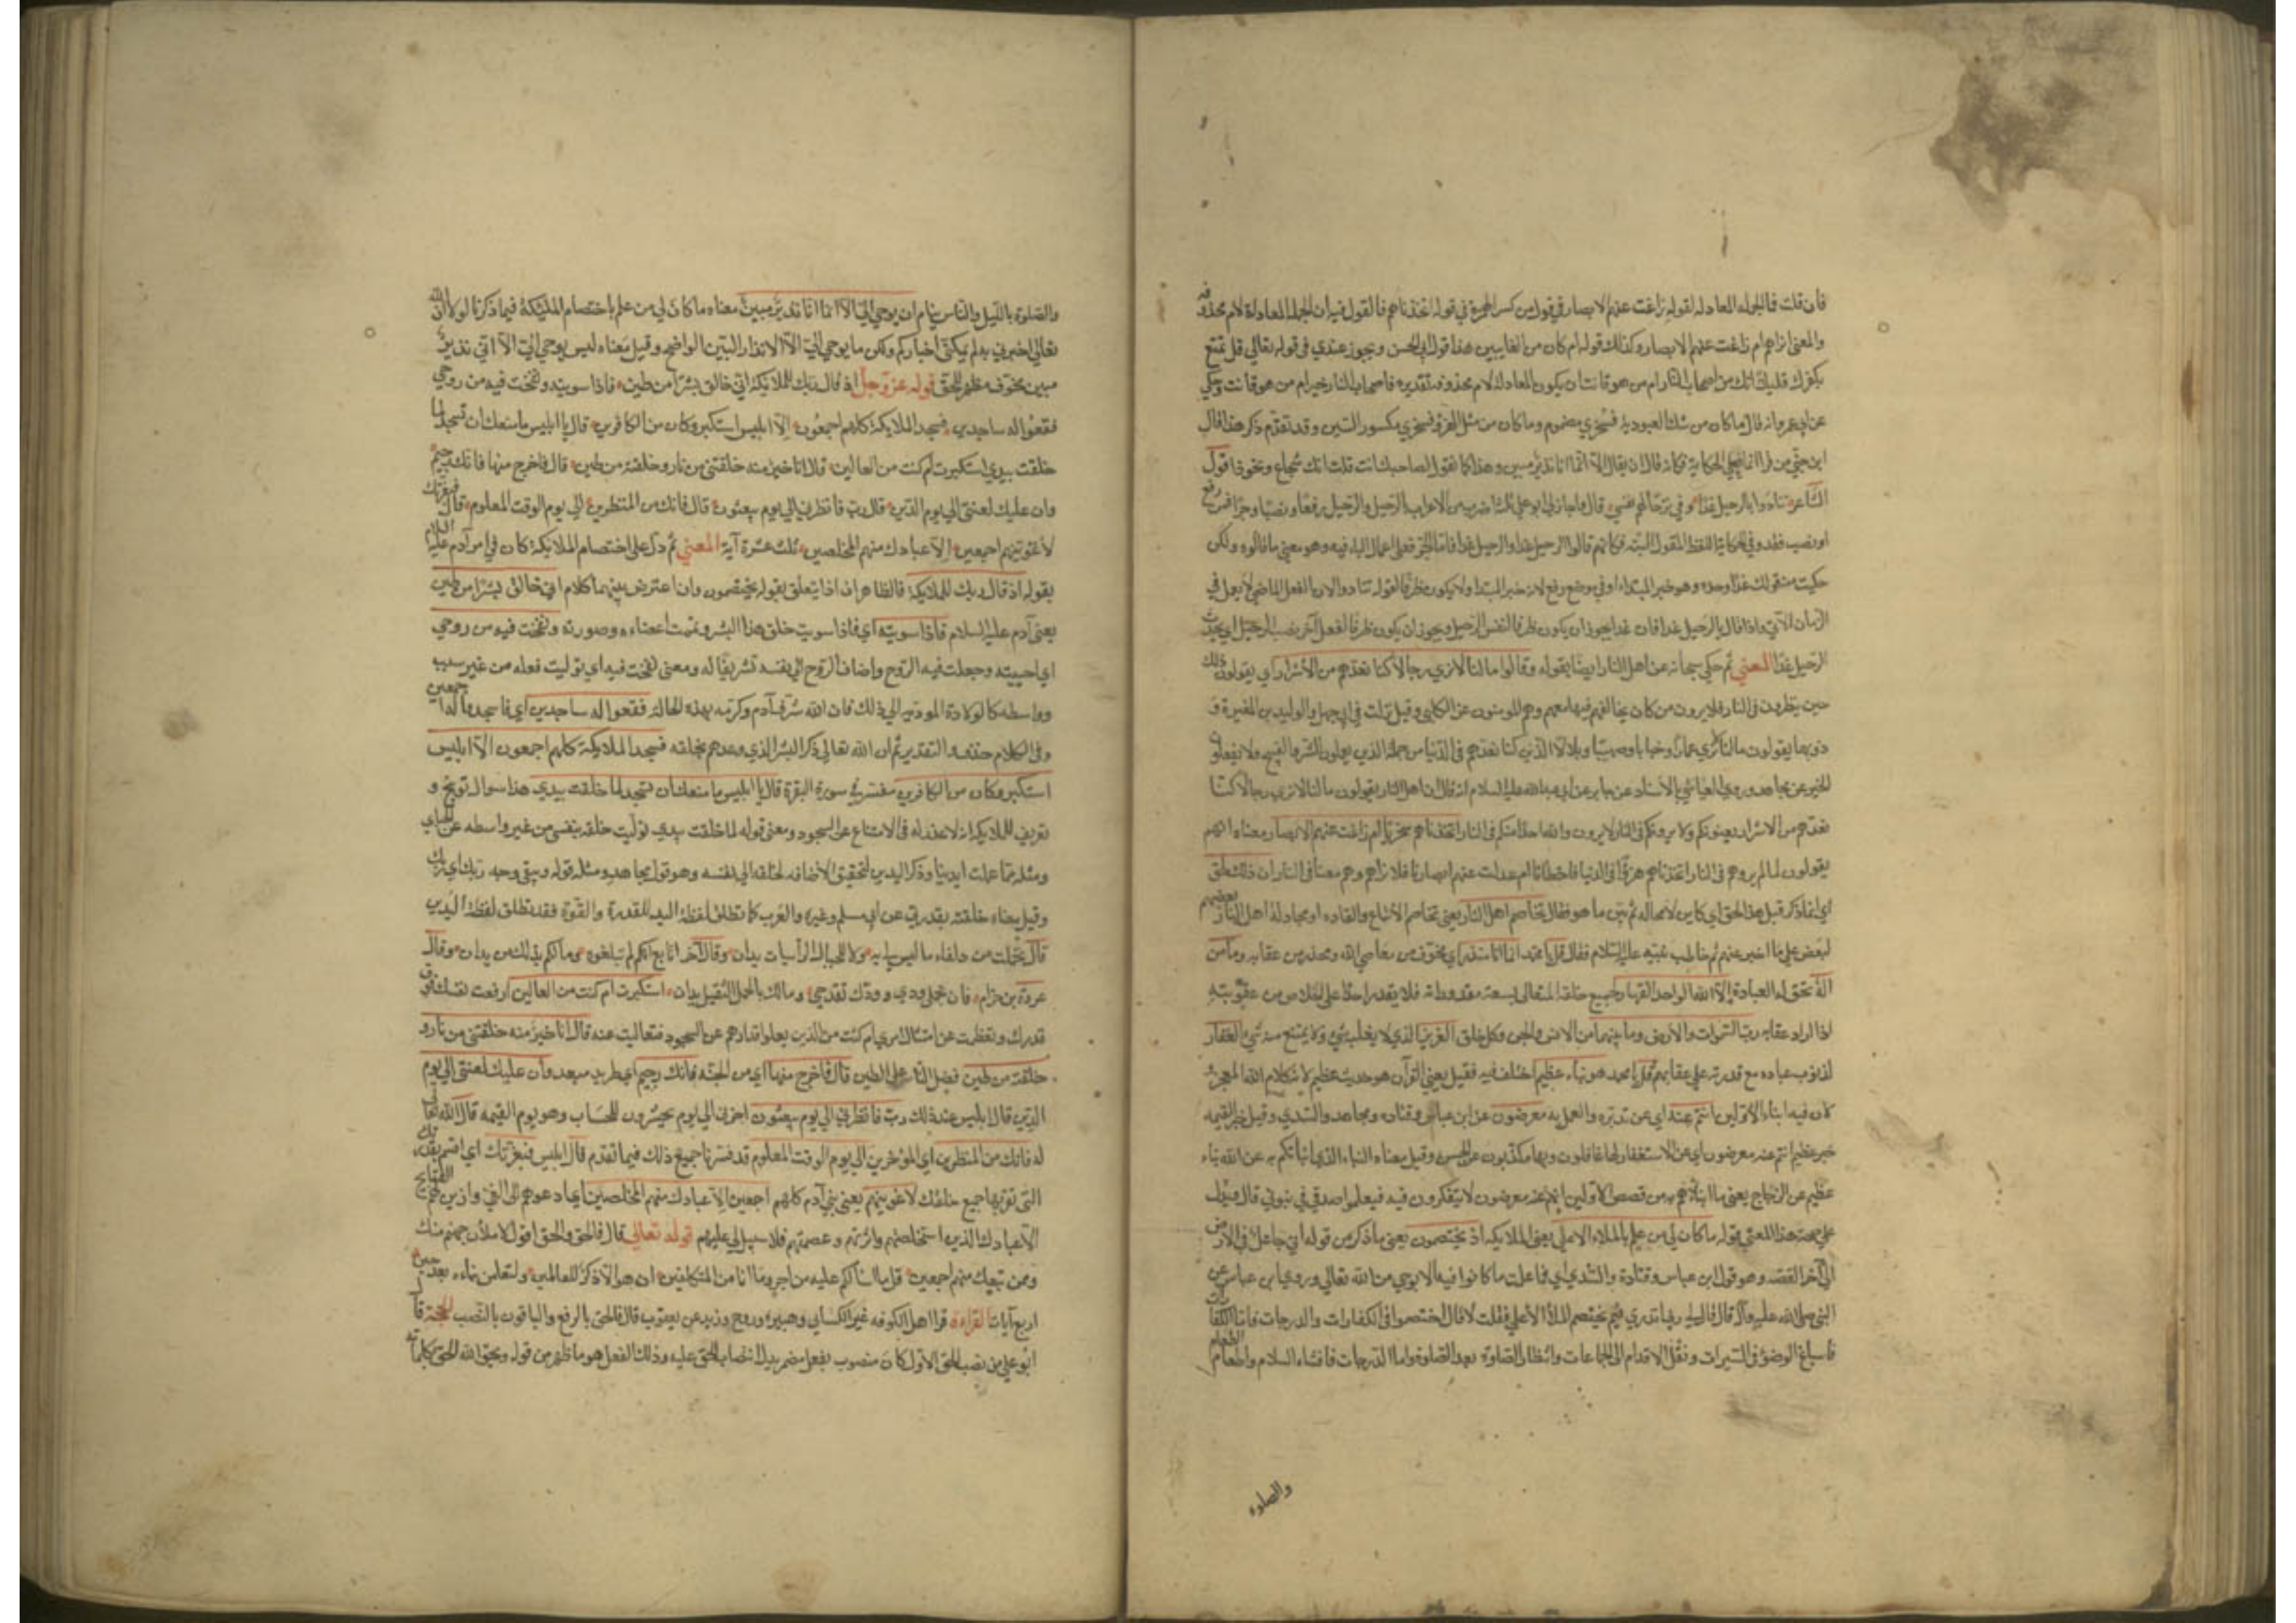 فان قلت فما الجملة المعادلة لقوله زاغت عنهم الابصار في قول من كسر الهمزة في قوله اتخذناهم فالقول فيه ان الجملة المعادلة لام محذوفه
والمعنى اتراهم ام زاغت عنهم الابصار وكذلك قوله ام كان من الغايبين هذا قول ابي الحسن ويجوز عندي في قوله تعالى قل تمتع
بكفرك قليلا انك من اصحاب النار ام من هو قانت ان يكون المعادلة لام محذوفة تقديره فاصحاب النار خير ام من هو قانت وحكي
عن ابي عمرو انه قال ما كان من مثل العبودية فسُخري مضموم وما كان من مثل الهزؤ فسِخري مكسور السين وقد تقدم ذكر هذا قال
ابن جني من قرا انما فعلى الحكاية فكانه قال ان يقال الا انما انا نذير مبين وهذا كما تقول لصاحبك انت قلت انك شجاع ونحو ذا قول
الشاعر تنادوا بالرحيل غدا وفي ترحالهم نفسي قال واجاز لي ابو علي ثلاثة اضرب من الاعراب الرحيل والرحيل رفعا ونصبا وجرا فمن رفع
او نصب فقدر في الحكاية اللفظ المقول البتة فكانهم قالوا الرحيل غدا والرحيل غدا فاما الجر فعلى اعمال الباء فيه وهو معنى ما قالوه ولكن
حكيت منه قولك غدا وحده وهو خبر المبتداء وفي موضع رفع لانه خبر المبتدا ولا يكون ظرفا لقوله تنادوا لان الفعل الماضي لا يعمل في
الزمان الآتي واذا قال بالرحيل غدا فان غدا يجوز ان يكون ظرفا لنفس الرحيل ويجوز ان يكون ظرفا لفعل آخر نصب الرحيل اي يحدث
الرحيل غدا المعني ثم حكى سبحانه عن اهل النار ايضا بقوله وقالوا ما لنا لا نرى رجالا كنا نعدهم من الاشرار اي يقولون ذلك
حين ينظرون في النار فلا يرون من كان يخالفهم فيها معهم وهم المومنون عن الكلبي وقيل نزلت في ابي جهل والوليد بن المغيرة و
ذويهما يقولون ما لنا لا نرى عمارا وخبابا وصهيبا وبلالا الذين كنا نعدهم في الدنيا من جملة الذين يفعلون الشر والقبيح ولا يفعلون
الخير عن مجاهد وروى العياشي بالاسناد عن جابر عن ابي عبد الله عليه السلام انه قال ان اهل النار يقولون ما لنا لا نرى رجالا كنا
نعدهم من الاشرار يعنونكم ولا يرونكم في النار لا يرون والله احدا منكم في النار اتخذناهم سخريا ام زاغت عنهم الابصار معناه انهم
يقولون لما لم يروهم في النار اتخذناهم هزؤا في الدنيا فاخطانا ام عدلت عنهم ابصارنا فلا نراهم وهم معنا في النار ان ذلك لحق
اي ما ذكر قبل هذا لحق اي كاين لا محالة ثم بين ما هو فقال تخاصم اهل النار يعني تخاصم الاتباع والقاده او مجادلة اهل النار بعضهم
لبعض على ما اخبر عنهم ثم خاطب نبيه عليه السلام فقال قل يا محمد انما انا منذر اي مخوف من معاصي الله ومحذر من عقابه وما من
اله تحق له العبادة الا الله الواحد القهار لجميع خلقه المتعالي بسعة مقدوراته فلا يقدر احد على الخلاص من عقوبته
اذا اراد عقابه رب السموات والارض وما بينهما من الانس والجن وكل خلق العزيز الذي لا يغلبه شيء ولا يمتنع منه شيء الغفار
لذنوب عباده مع قدرته على عقابهم قل يا محمد هو نباء عظيم اختلف فيه فقيل يعني القرآن هو حديث عظيم لانه كلام الله المعجز و
لان فيه ابناء الاولين انتم عنه اي عن تدبره والعمل به معرضون عن ابن عباس وقتادة ومجاهد والسدي وقيل خبر القيمه
خبر عظيم انتم عنه معرضون اي عن الاستغفار لها غافلون وبها مكذبون عن الحسن وقيل معناه النباء الذي انباتكم به عن الله نباء
عظيم عن الزجاج يعني ما انباهم به من قصص الاولين انهم عنه معرضون لا يتفكرون فيه فيعلموا صدقي في نبوتي قال ويدل
على صحة هذا المعنى قوله ما كان لي من علم بالملاء الاعلى يعني الملايكه اذ يختصمون يعني ما ذكر من قوله اني جاعل في الارض
الى آخر القصة وهو قول ابن عباس وقتادة والسدي اي فما علمت ما كانوا فيه الا بوحي من الله تعالى وروى ابن عباس عن
النبي صلى الله عليه وآله قال قال لي ربي اتدري فيم يختصم الملأ الأعلى فقلت لا قال اختصموا في الكفارات والدرجات فاما الكفارات
فاسباغ الوضؤ في السبرات ونقل الاقدام الى الجماعات وانتظار الصلوة بعد الصلوة واما الدرجات فافشاء السلام واطعام الطعام
والصلوه
والصلوة بالليل والناس نيام ان يوحى الي الا انما انا نذير مبين معناه ما كان لي من علم باختصام الملئكة فيما ذكرنا لولا ان الله
تعالى اخبرني به لم يمكنني اخباركم ولكن ما يوحى الي الا الانذار البين الواضح وقيل معناه ليس يوحى الي الا اني نذير
مبين مخوف مظهر للحق قوله عز وجل اذ قال ربك للملايكة اني خالق بشرا من طين فاذا سويته ونفخت فيه من روحي
فقعوا له ساجدين فسجد الملايكة كلهم اجمعون الا ابليس استكبر وكان من الكافرين قال يا ابليس ما منعك ان تسجد لما
خلقت بيدي استكبرت ام كنت من العالين قال انا خير منه خلقتني من نار وخلقته من طين قال فاخرج منها فانك رجيم
وان عليك لعنتي الى يوم الدين قال رب فانظرني الى يوم يبعثون قال فانك من المنظرين الى يوم الوقت المعلوم قال فبعزتك
لأغوينهم اجمعين الا عبادك منهم المخلصين ثلث عشرة آية المعني ثم دل على اختصام الملايكة كان في امر آدم عليه السلام
بقوله اذ قال ربك للملايكة فالظاهر ان اذ يتعلق بقوله يختصمون وان اعترض بينهما كلام اني خالق بشرا من طين
يعني آدم عليه السلام فاذا سويته اي فاذا سويت خلق هذا البشر وتممت اعضاءه وصورته ونفخت فيه من روحي
اي احييته وجعلت فيه الروح واضاف الروح الى نفسه تشريفا له ومعنى نفخت فيه اي توليت فعله من غير سبب
وواسطه كالولادة المودية الى ذلك فان الله شرف آدم وكرمه بهذه الحالة فقعوا له ساجدين اي فاسجدوا له اجمعين
وفي الكلام حذف والتقدير ثم ان الله تعالى ذكر البشر الذي وعدهم بخلقه فسجد الملايكة كلهم اجمعون الا ابليس
استكبر وكان من الكافرين مفسر في سورة البقرة قال يا ابليس ما منعك ان تسجد لما خلقت بيدي هذا سوال توبيخ و
تعريف للملايكة انه لا عذر له في الامتناع عن السجود ومعنى قوله لما خلقت بيدي توليت خلقه بنفسي من غير واسطه عن الجبائي
ومثله مما عملت ايدينا وذكر اليدين لتحقيق الاضافه لخلقه الى نفسه وهو قول مجاهد ومثله قوله ويبقى وجه ربك اي ربك
وقيل معناه خلقته بقدرتي عن ابي مسلم وغيره والعرب كما تطلق لفظة اليد للقدرة والقوة فقد تطلق لفظة اليدين
قال تحملت من ذلفاء ما ليس لي به ولا للجبال الرأسيات يدان وقال آخر انا بع انكم لم تبلغوه وما لكم بذلك من يدان وقال
عروة بن حزام فان تحملي ودي وودك تفدحي وما لك بالحمل الثقيل يدان استكبرت ام كنت من العالين ارفعت نفسك فوق
قدرك وتعظمت عن امتثال امري ام كنت من الذين يعلو اقدارهم عن السجود فتعاليت عنه قال انا خير منه خلقتني من نار و
خلقته من طين فضل النار على الطين قال فاخرج منها اي من الجنه فانك رجيم اي طريد مبعد وأن عليك لعنتي الى يوم
الدين قال ابليس عند ذلك رب فانظرني الى يوم يبعثون اخرني الى يوم يحشرون للحساب وهو يوم القيمه قال الله تعالى
له فانك من المنظرين اي المؤخرين الى يوم الوقت المعلوم قد فسرنا جميع ذلك فيما تقدم قال ابليس فبعزتك اي اقسم بقدرتك
التي تقهر بها جميع خلقك لاغوينهم يعني بني آدم كلهم اجمعين الا عبادك منهم المخلصين اي ادعوهم الى الغي وازين لهم القبايح
الا عبادك الذين استخلصتهم واثرتهم وعصمتهم فلا سبيل لي عليهم قوله تعالى قال فالحق والحق اقول لاملأن جهنم منك
وممن تبعك منهم اجمعين قل ما اسألكم عليه من اجر وما انا من المتكلفين ان هو الا ذكر للعالمين ولتعلمن نباءه بعد حين
اربع آيات القراءة قرا اهل الكوفه غير الكسائي وهبيرة وروح وزيد عن يعقوب قال فالحق بالرفع والباقون بالنصب الحجة قال
ابو علي من نصب الحق الاول كان منصوب بفعل مضمر يدل انتصاب الحق عليه وذلك الفعل هو ما ظهر من قوله ويحق الله الحق بكلماته